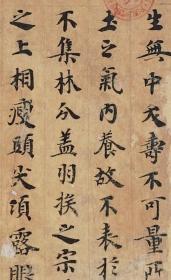 生無中夭壽不可量所
土之氣內養故不表於
不集林分蓋羽族之宗
之上相瘦頭尖頂露眼